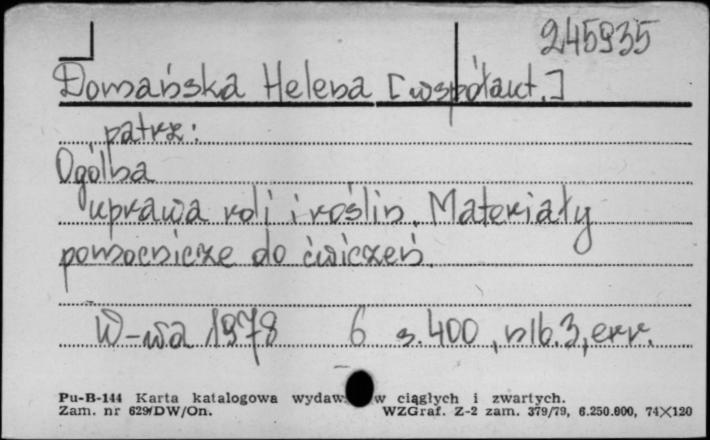 245935
Domańska Helena [współaut.]
patrz:
Ogólna
uprawa roli i roślin. Materiały
pomocnicze do ćwiczeń.
W-wa 1978 6 s. 400, nlb. 3, err.
Pu-B-144 Karta katalogowa wydaw w ciągłych i zwartych.
Zam. nr 629/DW/On. WZGraf. Z-2 zam. 379/79, 6.250.000, 74×120